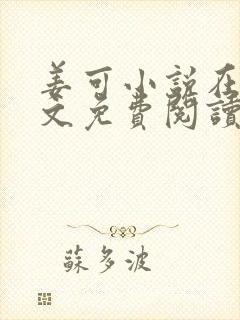 姜可小說在
文免費閱讀
蘇多波